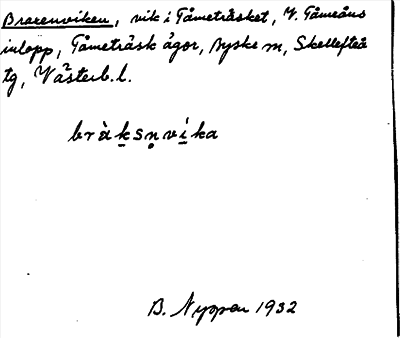 Braxenviken, vik i Tåmeträsket, V. Tåmeåns
inlopp, Tåmeträsk ägor, Byske sn, Skellefteå
tg, Västerb. l.
bràksṇvíka
B. Nyman 1932